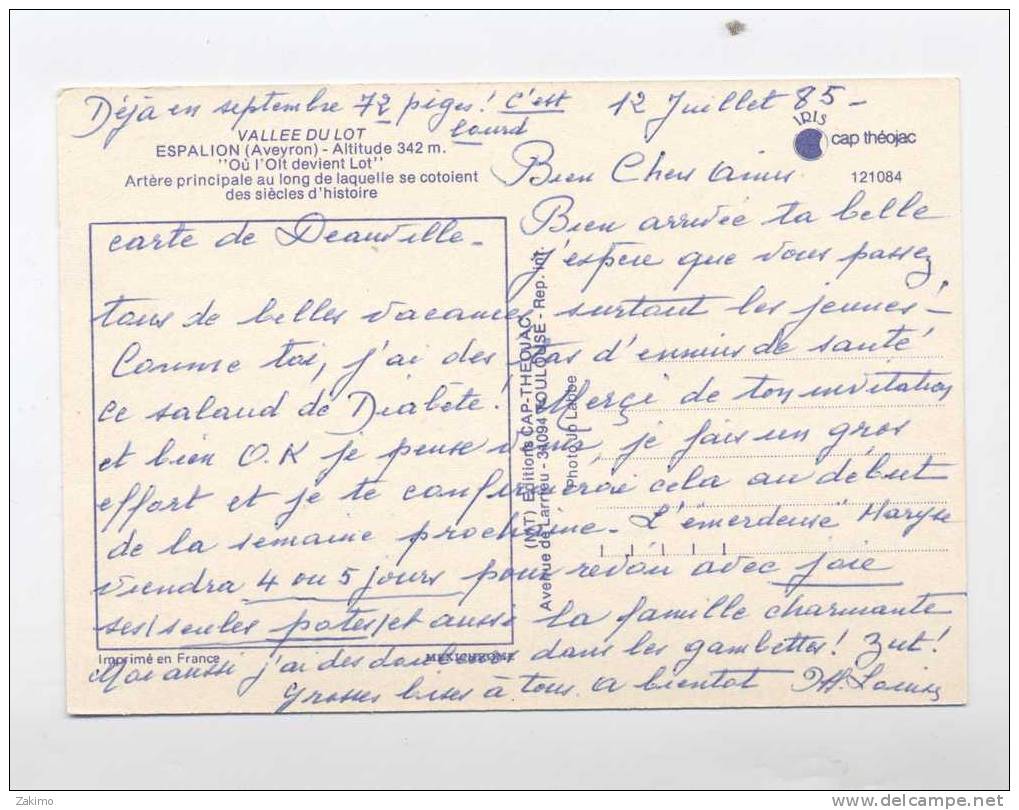 Déjà en septembre 72 piges ! c'est lourd
12 Juillet 85 -
VALLEE DU LOT
ESPALION (Aveyron) - Altitude 342 m.
"Où l'Olt devient Lot"
Artère principale au long de laquelle se cotoient
des siècles d'histoire
IRIS
cap théojac
121084
Bien Chers Amis
Bien arrivée ta belle
carte de Deauville -
J'espère que vous passez
tous de belles vacances surtout les jeunes !
Comme toi, j'ai des tas d'ennuis de santé
ce salaud de Diabète ! Merçi de ton invitation
et bien O.K je pense venir, je fais un gros
effort et je te confirmerai cela au début
de la semaine prochaine - L'"emerdeuse" Maryse
viendra 4 ou 5 jours pour revoir avec joie
ses/seules potes/et aussi la famille charmante
Moi aussi j'ai des douleurs dans les gambettes ! Zut !
Grosses bises à tous. a bientot
(MT) Editions CAP-THEOJAC
Avenue de Larrieu - 31094 TOULOUSE - Rep. Int.
Photo Jo Labbe
Imprimé en France
MEXICHROME
Zakimo
www.delcampe.net